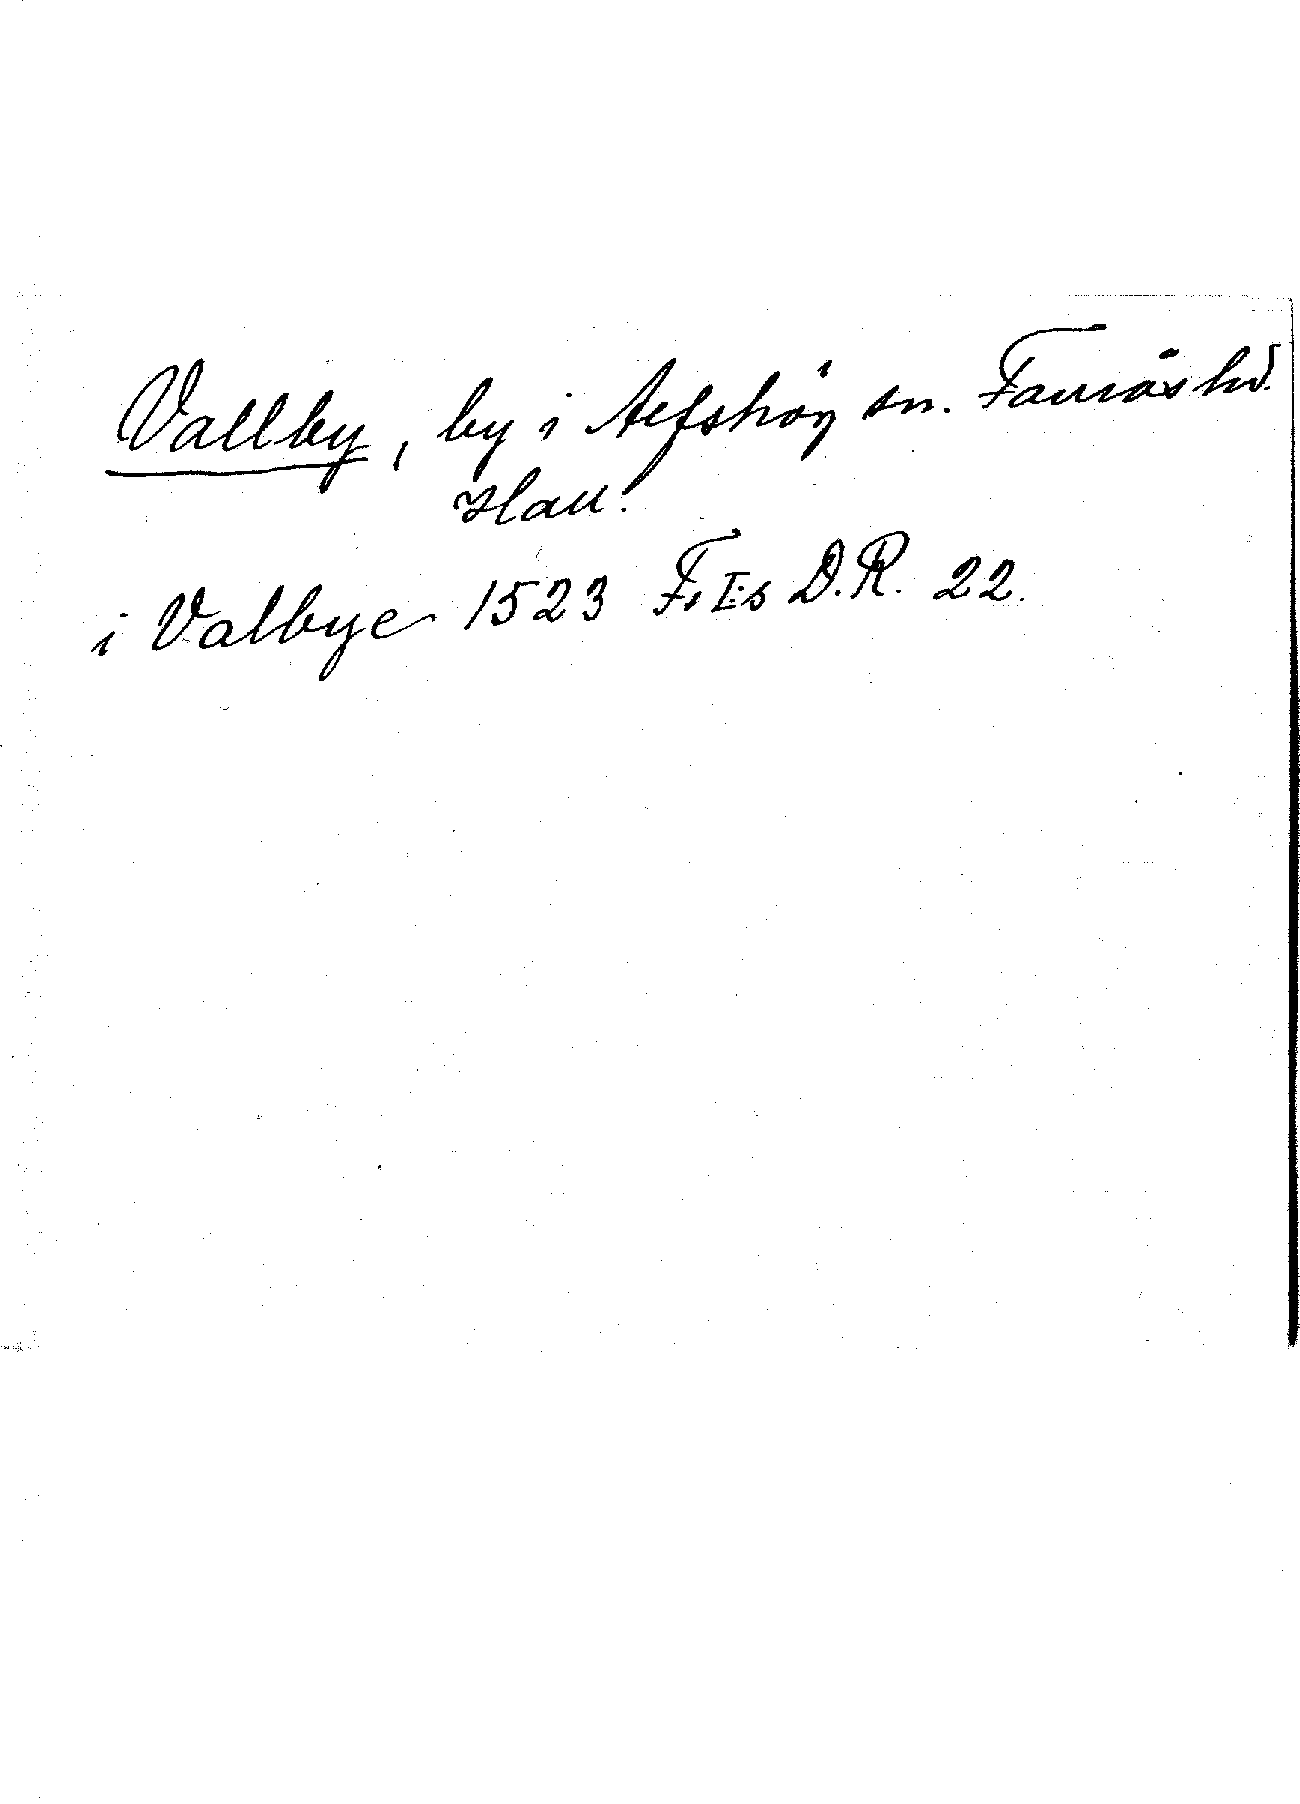 Vallby, by i Aelfshög sn. Fauråshd.
Hall.
i Valbye 1523 F. I:s D.R. 22.